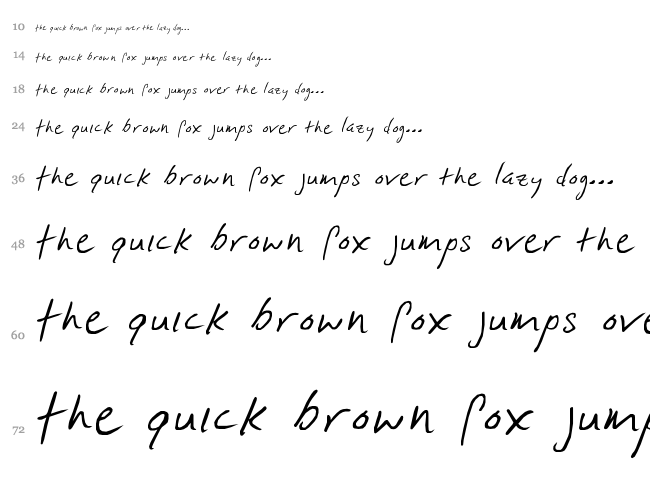 10 the quick brown fox jumps over the lazy dog...
14 the quick brown fox jumps over the lazy dog...
18 the quick brown fox jumps over the lazy dog...
24 the quick brown fox jumps over the lazy dog...
36 the quick brown fox jumps over the lazy dog...
48 the quick brown fox jumps over the
60 the quick brown fox jumps ove
72 the quick brown fox jump